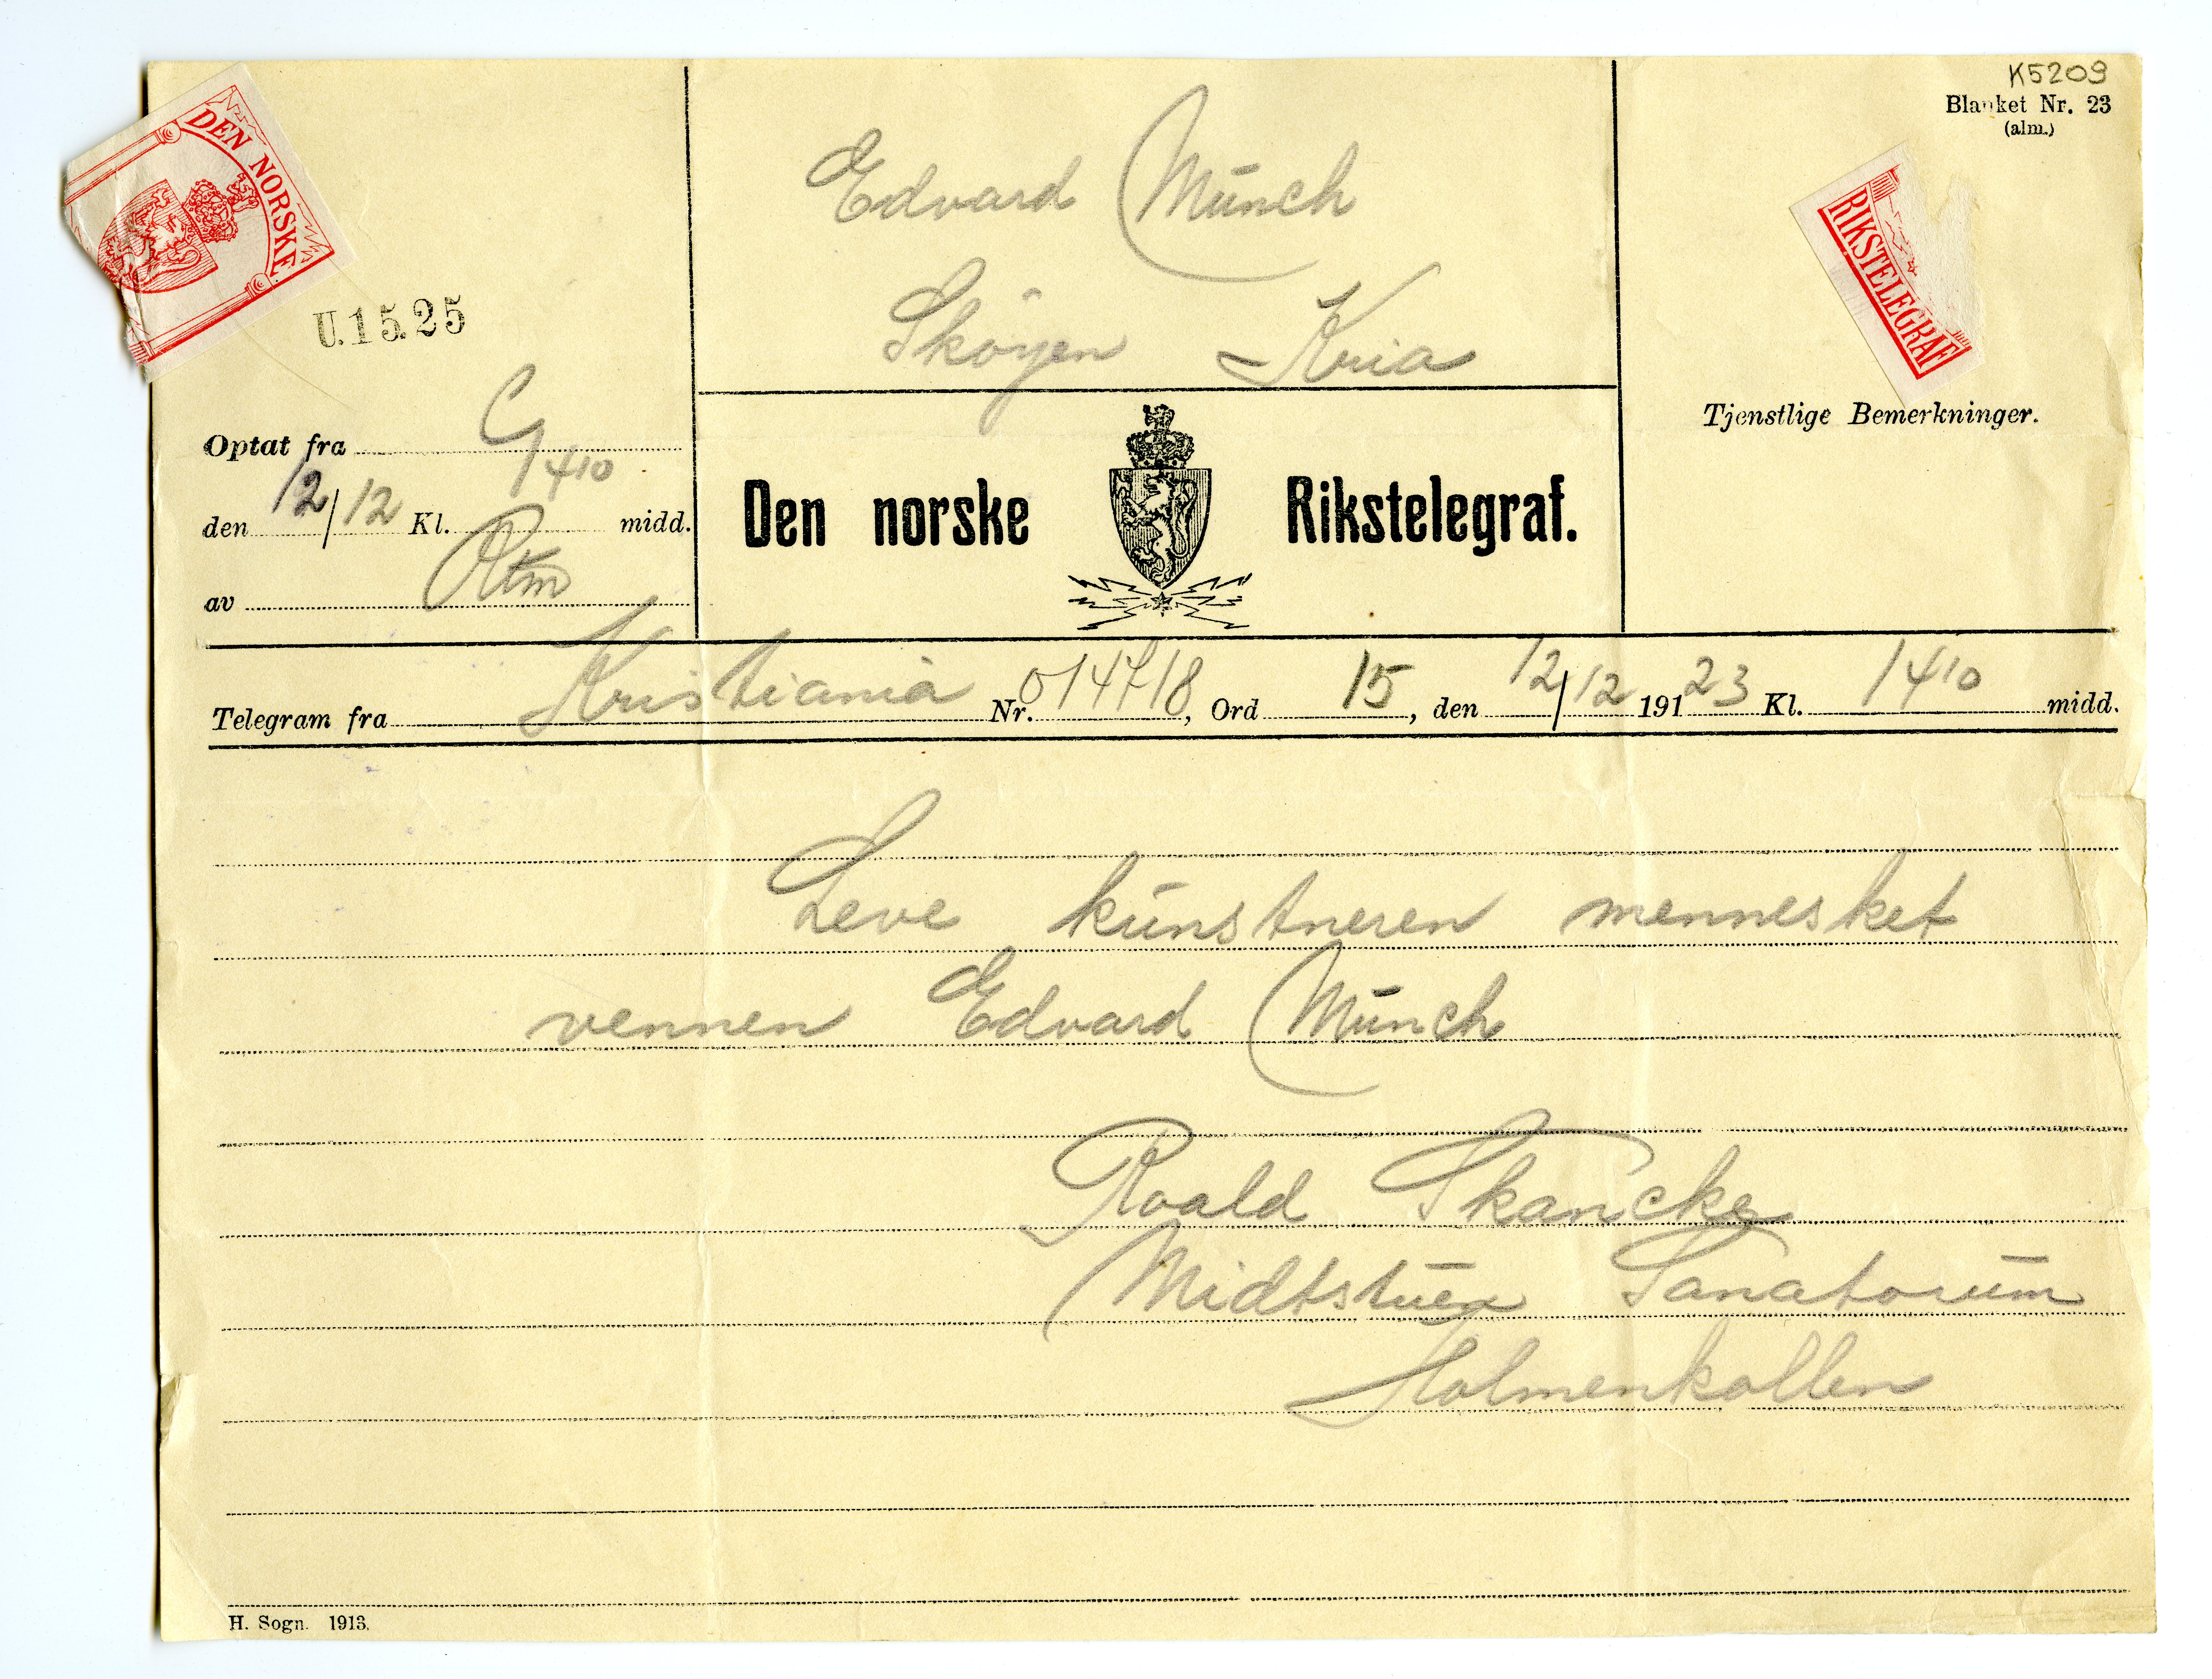 K5209
Blanket Nr. 23
(alm.)
DEN NORSKE
RIKSTELEGRAF
U.15.25
Edvard Munch
Skøyen Kria
Optat fra C
den 12/12 Kl. 1410 midd.
av
Den norske Rikstelegraf.
Tjenstlige Bemerkninger.
Telegram fra Kristiania Nr. 014718, Ord 15, den 12/12 19123 Kl. 1410 midd.
Leve kunstneren mennesket
vennen Edvard Munch
Roald Skancke
Midtstuen Sanatorium
Holmenkollen
H. Sogn. 1913.